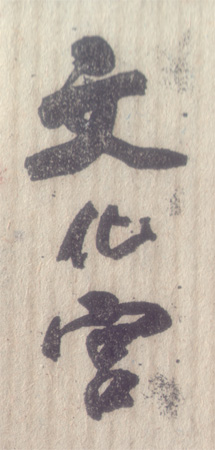 文化宫